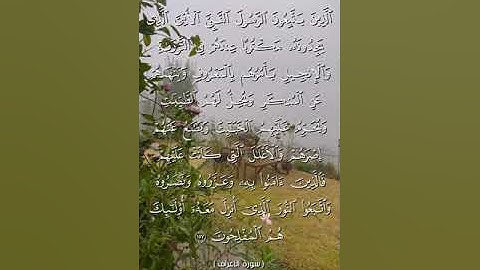 ٱلَّذِينَ يَتَّبِعُونَ ٱلرَّسُولَ ٱلنَّبِىَّ ٱلْأُمِّىَّ ٱلَّذِى
يَجِدُونَهُۥ مَكْتُوبًا عِندَهُمْ فِى ٱلتَّوْرَىٰةِ
وَٱلْإِنجِيلِ يَأْمُرُهُم بِٱلْمَعْرُوفِ وَيَنْهَىٰهُمْ
عَنِ ٱلْمُنكَرِ وَيُحِلُّ لَهُمُ ٱلطَّيِّبَٰتِ
وَيُحَرِّمُ عَلَيْهِمُ ٱلْخَبَٰٓئِثَ وَيَضَعُ عَنْهُمْ
إِصْرَهُمْ وَٱلْأَغْلَٰلَ ٱلَّتِى كَانَتْ عَلَيْهِمْ
فَٱلَّذِينَ ءَامَنُوا۟ بِهِۦ وَعَزَّرُوهُ وَنَصَرُوهُ
وَٱتَّبَعُوا۟ ٱلنُّورَ ٱلَّذِىٓ أُنزِلَ مَعَهُۥٓ أُو۟لَٰٓئِكَ
هُمُ ٱلْمُفْلِحُونَ ١٥٧
( سورة الاعراف )